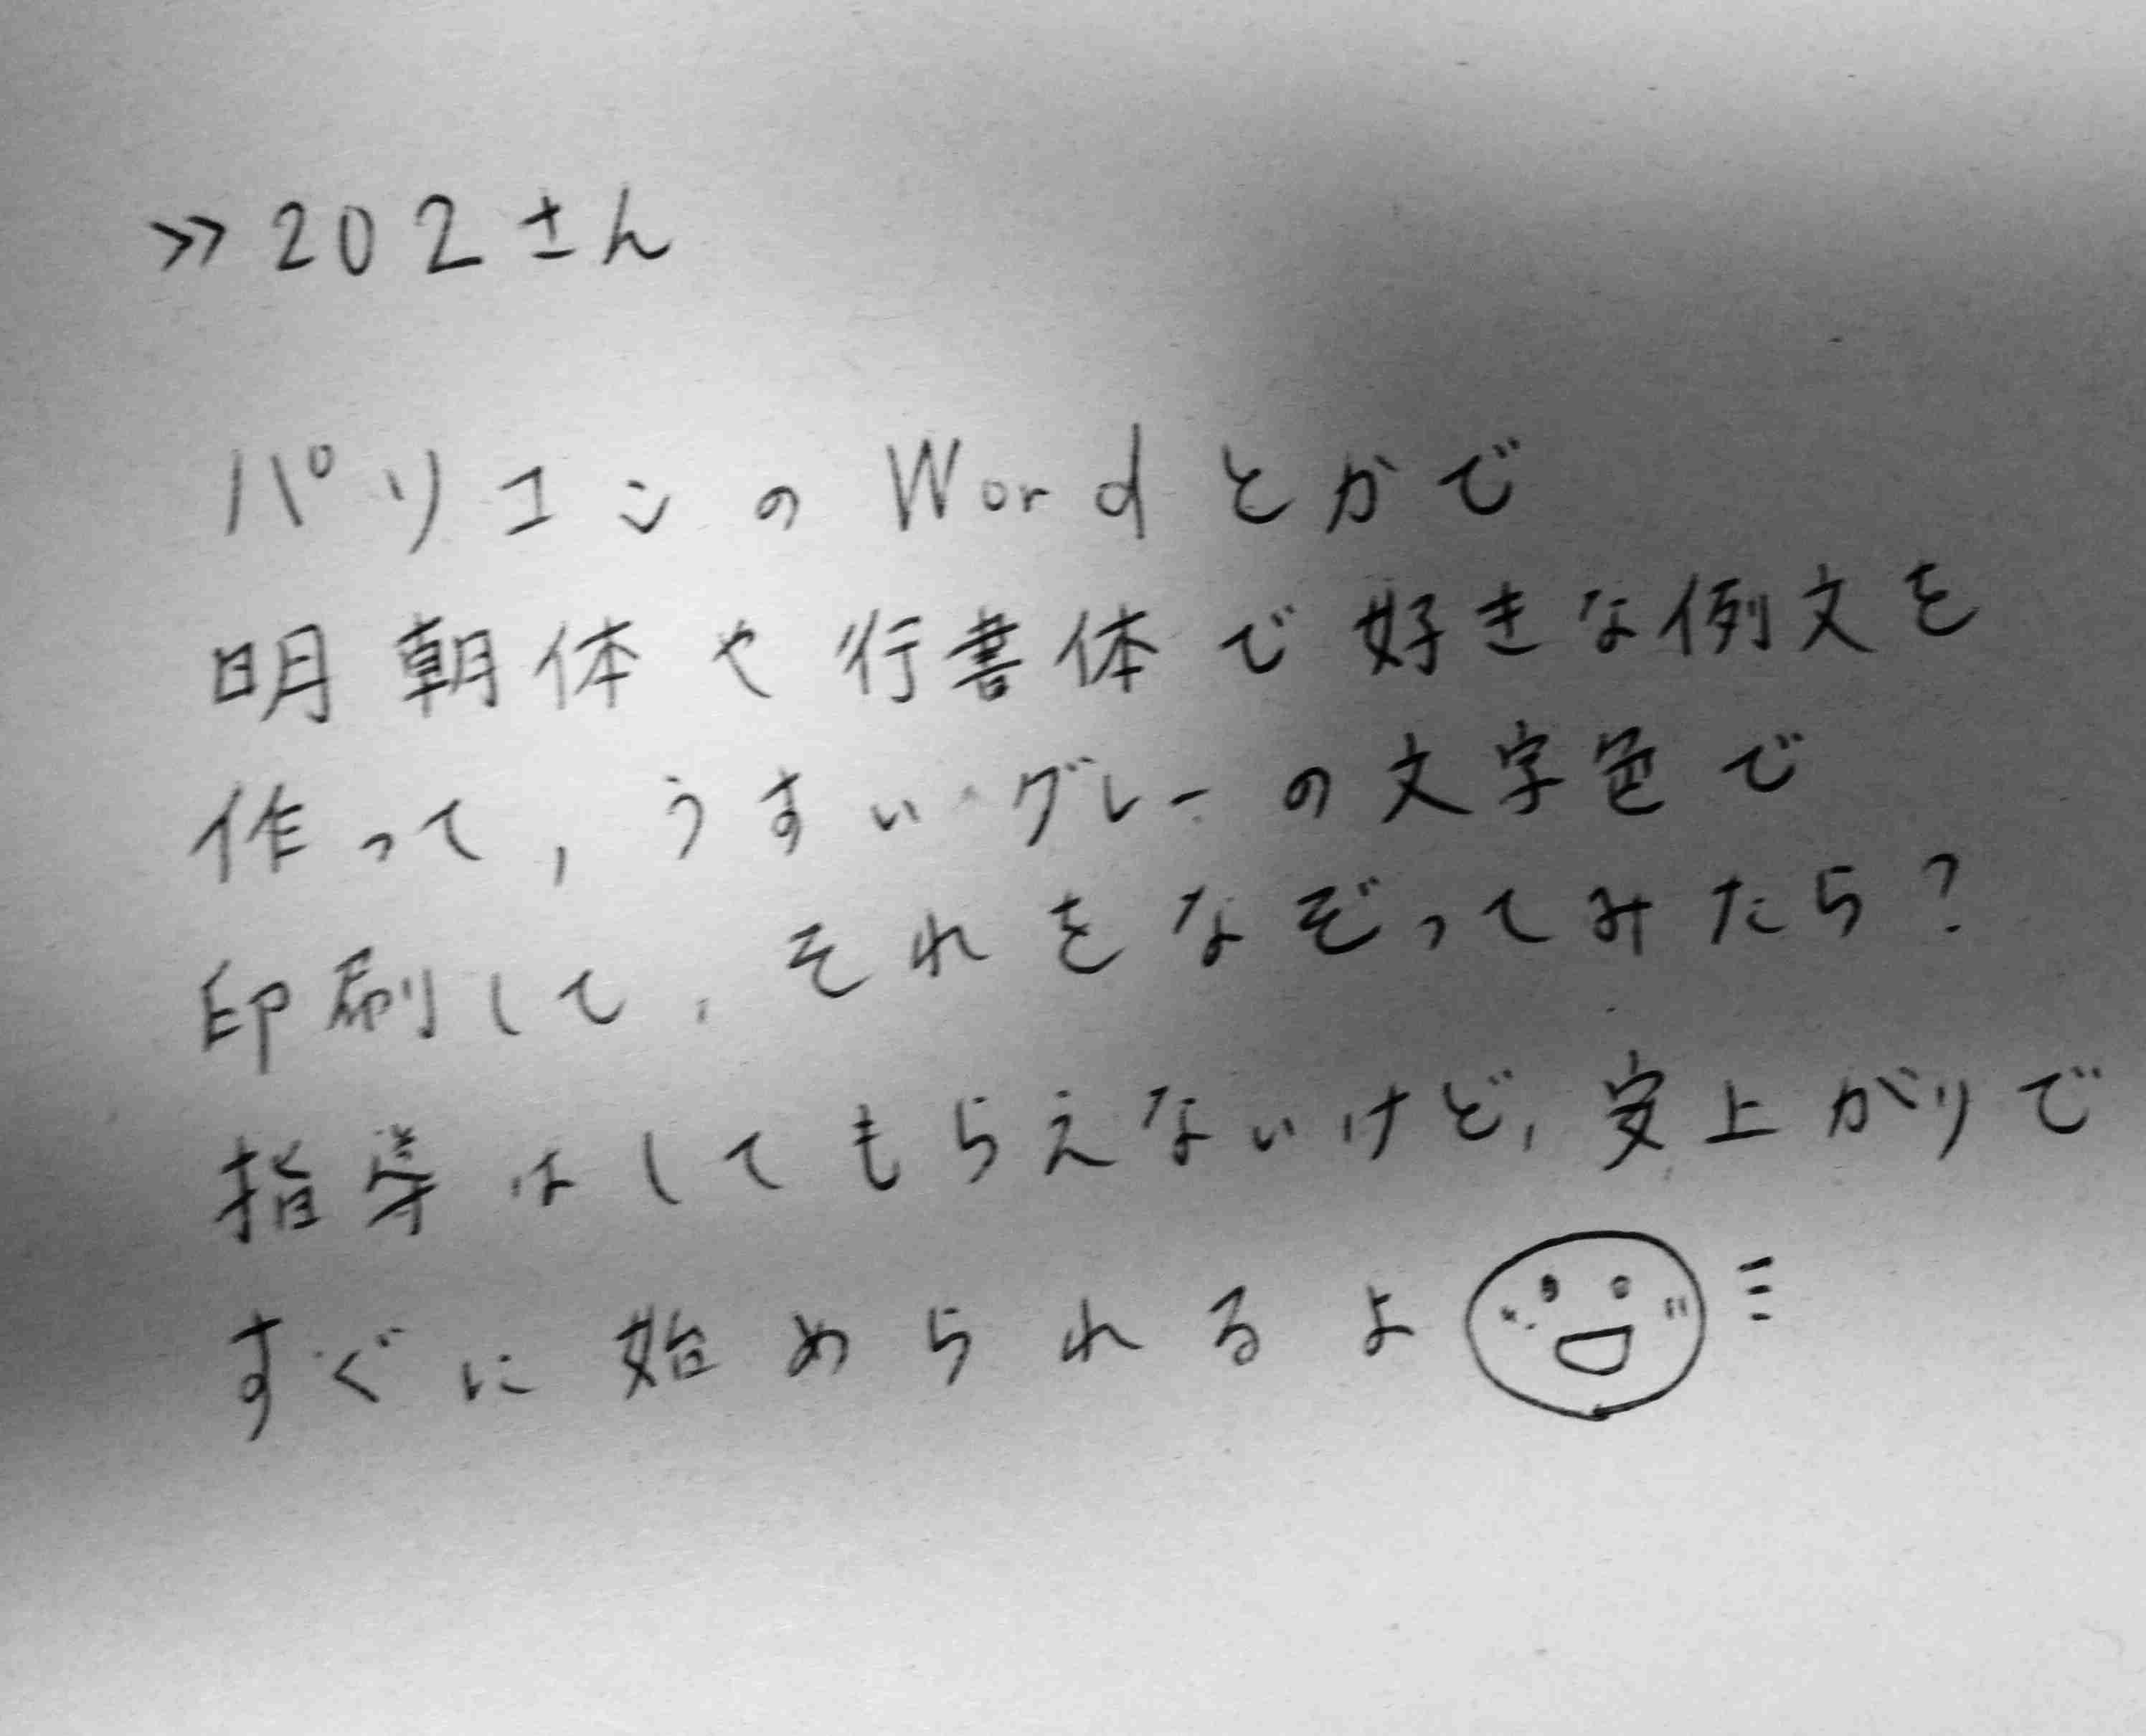 ≫202さん
パソコンのWordとかで
明朝体や行書体で好きな例文を
作って,うすいグレーの文字色で
印刷して,それをなぞってみたら?
指導はしてもらえないけど,安上がりで
すぐに始められるよ